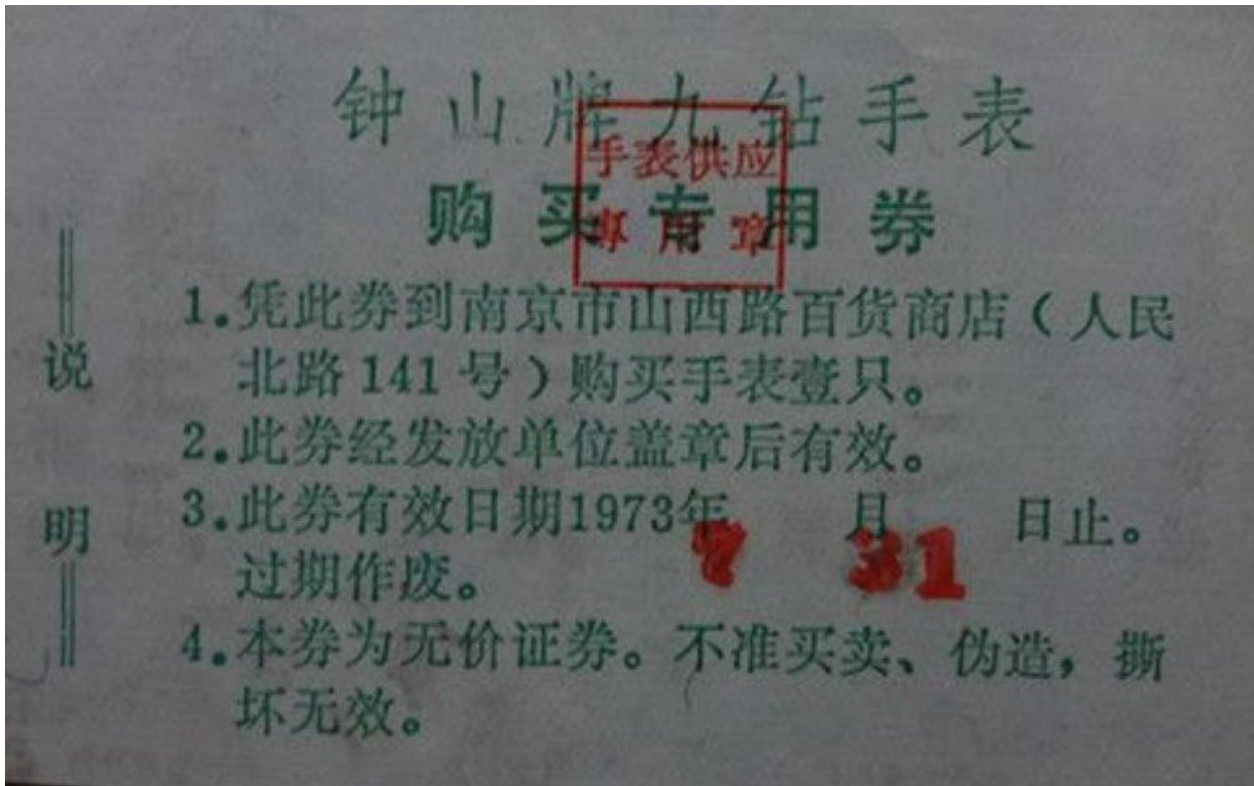 钟山牌九钻手表
购买专用券
手表供应
專用章
说明
1.凭此券到南京市山西路百货商店(人民
北路141号)购买手表壹只。
2.此券经发放单位盖章后有效。
3.此券有效日期1973年 月 日止。
7 31
过期作废。
4.本券为无价证券。不准买卖、伪造,撕
坏无效。